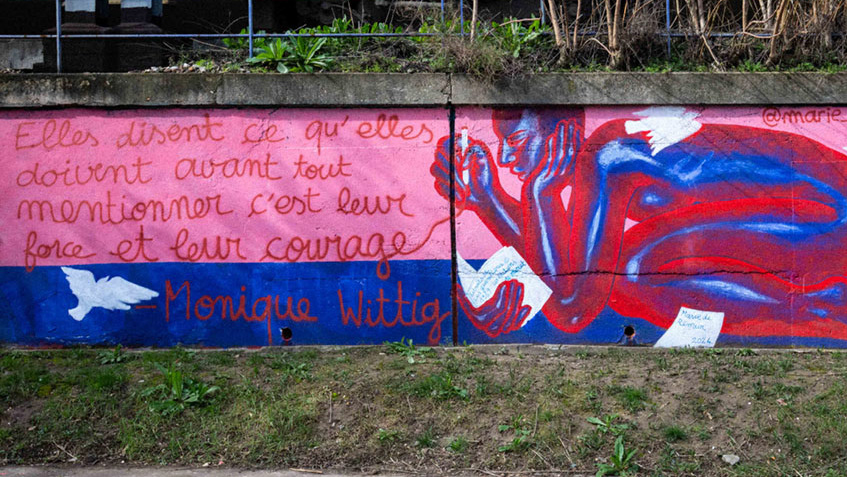 Elles disent ce qu'elles
doivent avant tout
mentionner c'est leur
force et leur courage
- Monique Wittig
@marie
Marie de
2024